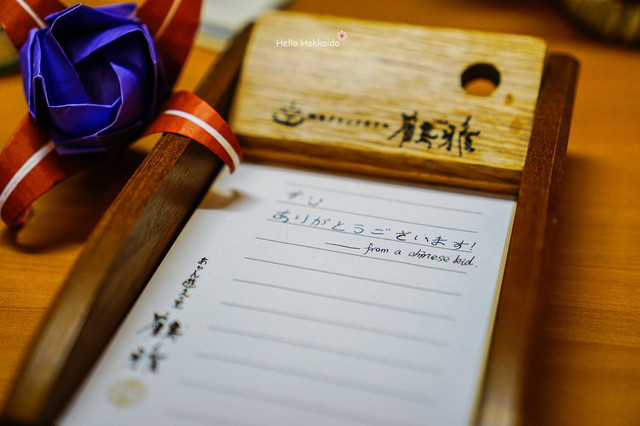 Hello Hokkaido
鶴雅
すひ
ありがとうございます!
—— from a chinese kid.
あかん遊久の里
鶴雅